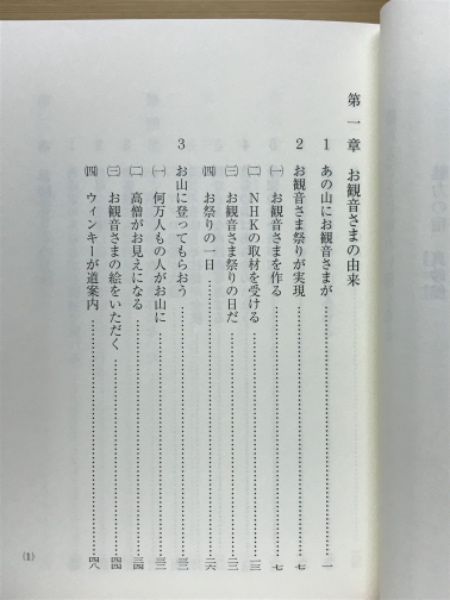 第一章 お観音さまの由来
1 あの山にお観音さまが……………一
2 お観音さま祭りが実現……………七
㈠ お観音さまを作る……………七
㈡ NHKの取材を受ける……………一三
㈢ お観音さま祭りの日だ……………二二
㈣ お祭りの一日……………二六
3 お山に登ってもらおう……………三二
㈠ 何万人もの人がお山に……………三二
㈡ 高僧がお見えになる……………三四
㈢ お観音さまの絵をいただく……………四四
㈣ ウィンキーが道案内……………四八
(1)